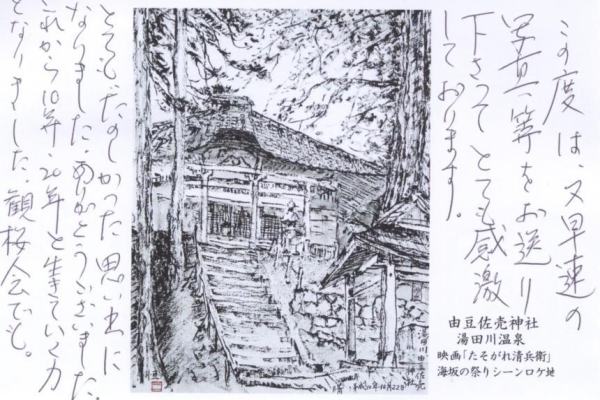 この度は、又早速の
写真等をお送り
下さってとても感激
しております。
由豆佐売神社
湯田川温泉
映画「たそがれ清兵衛」
海坂の祭りシーンロケ地
湯田川由豆佐売
神社
平成20年10月22日
とてもたのしかった思い出に
なりました。ありがとうございました。
これから10年、20年と生きていく力
となりました。観桜会でも。